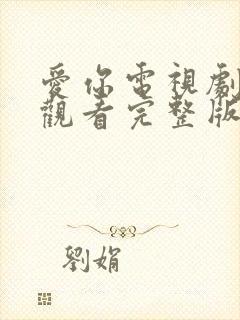 愛你電視劇
觀看完整版
劉娟